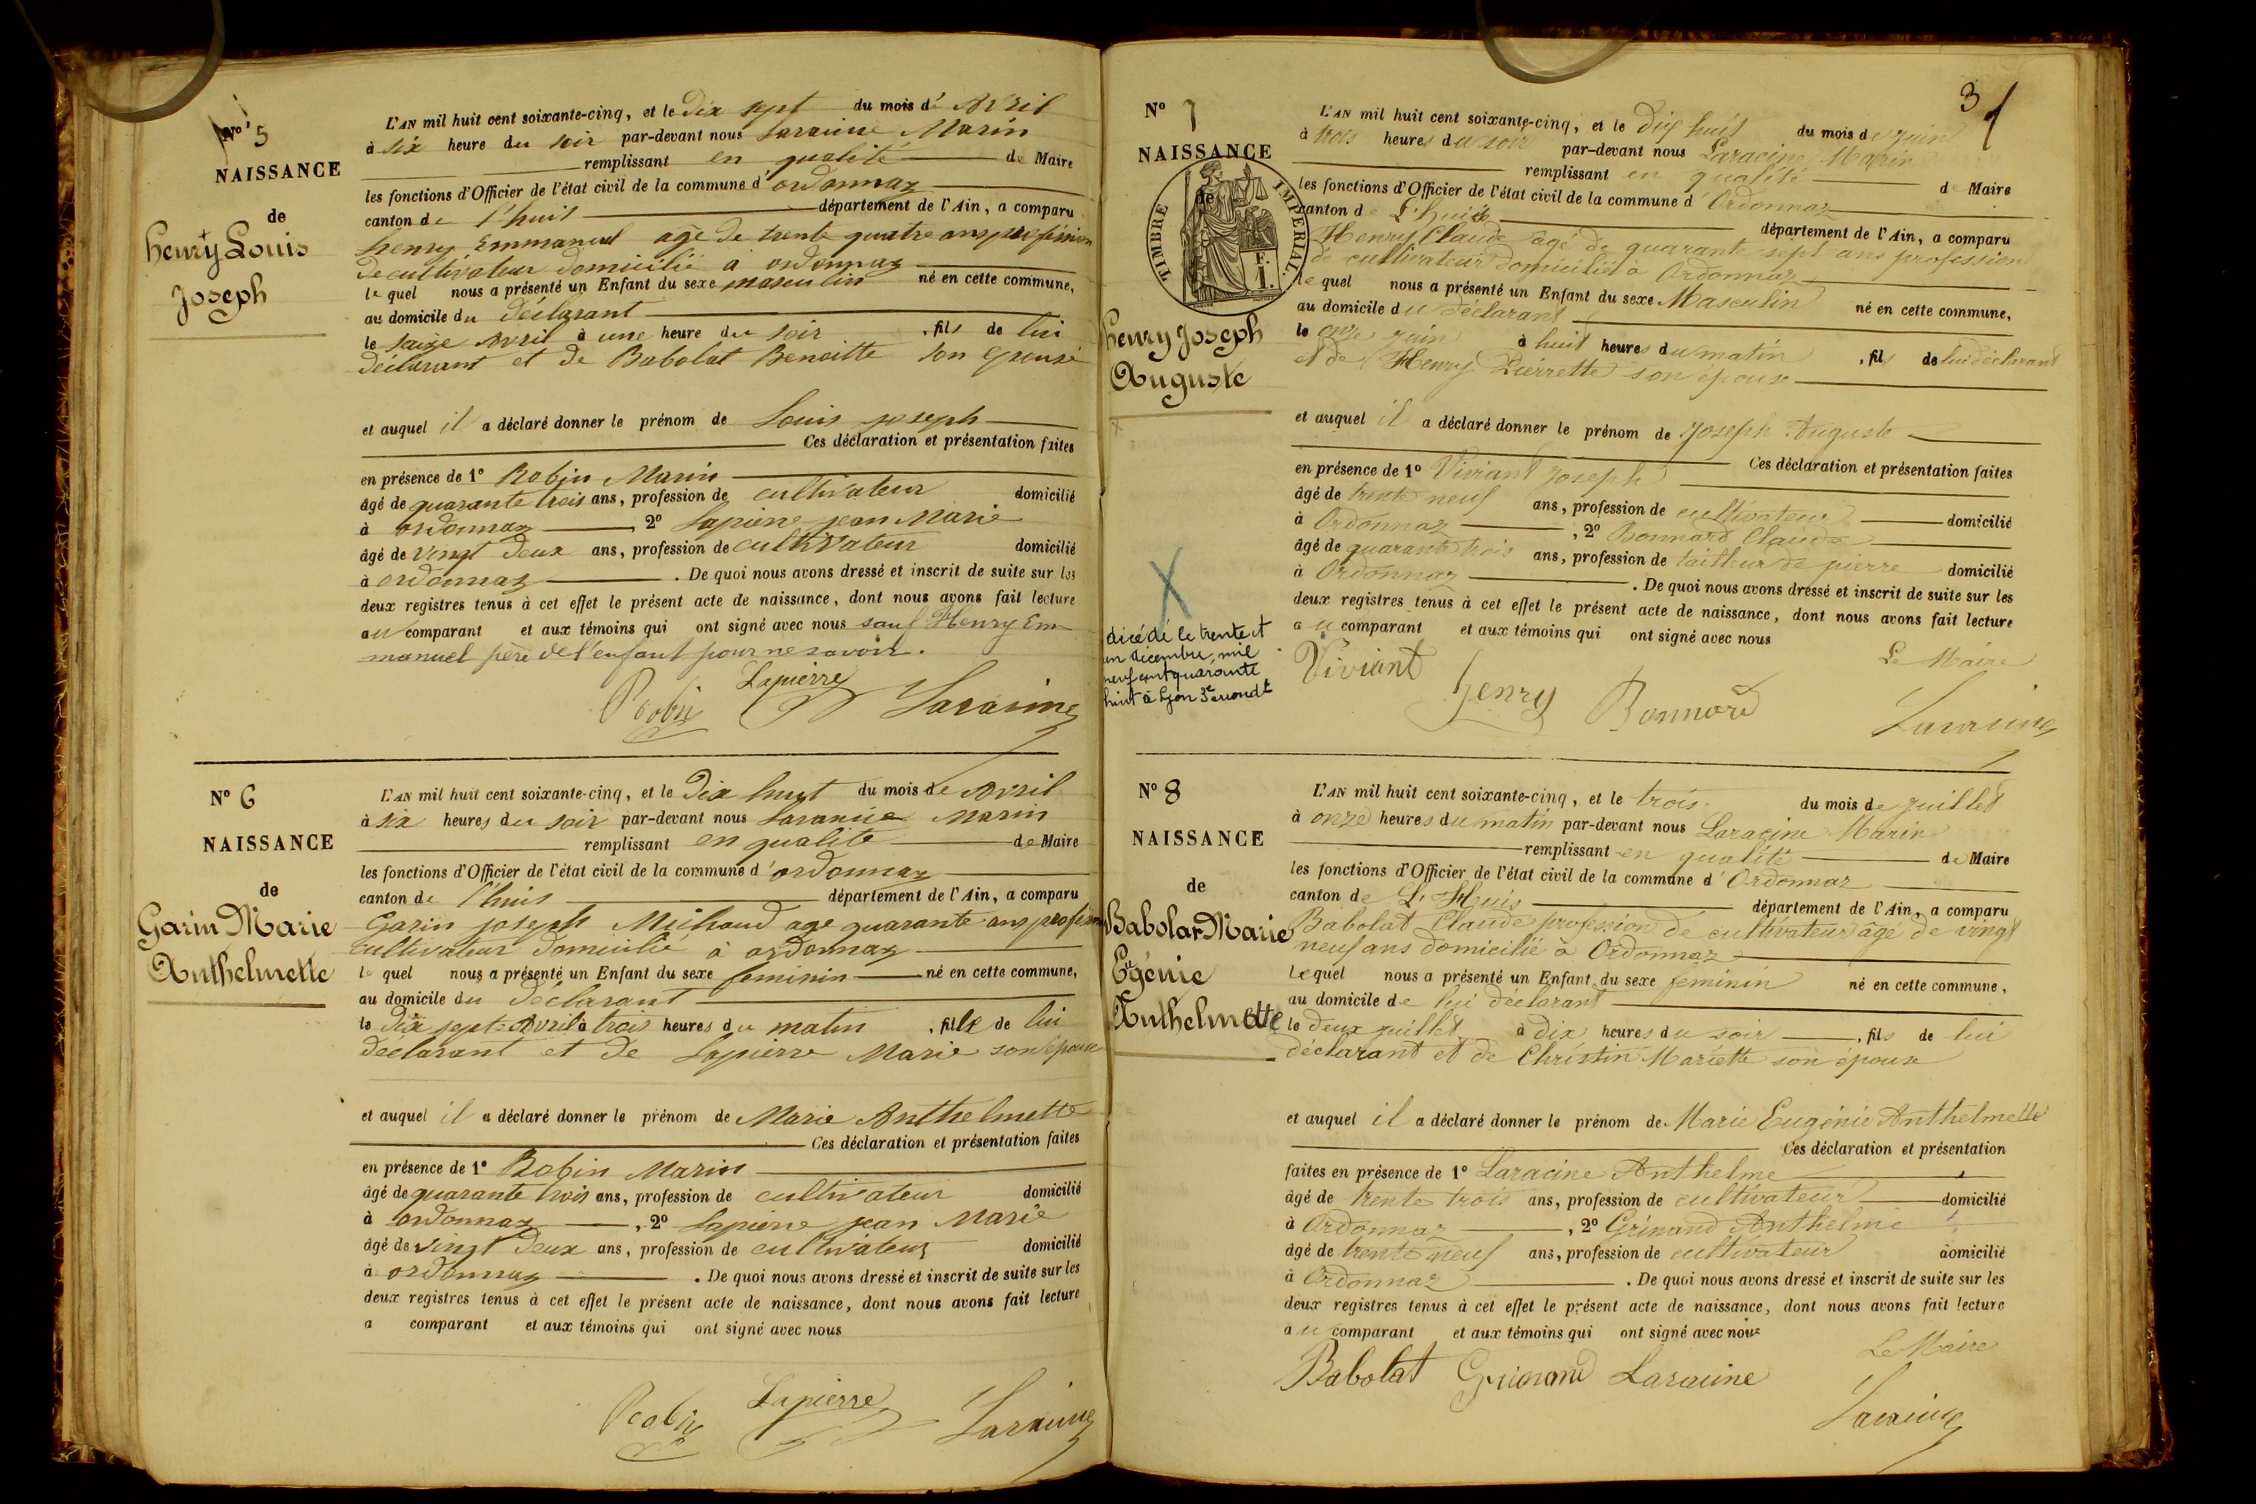 N° 5
NAISSANCE
de
henry Louis
Joseph
L'AN mil huit cent soixante-cinq, et le dix sept du mois d' Avril
à six heure du soir par-devant nous Laracine Marin
remplissant en qualité de Maire
les fonctions d'Officier de l'état civil de la commune d' ordonnaz
canton de l'huis département de l'Ain, a comparu
henry Emmanuel age de trente quatre ans profession
de cultivateur domicilié à ordonnaz
le quel nous a présenté un Enfant du sexe masculin né en cette commune,
au domicile du déclarant
le saize Avril à une heure du soir , fils de lui
déclarant et de Babolat Benoitte son epouse
et auquel il a déclaré donner le prénom de Louis joseph
Ces déclaration et présentation faites
en présence de 1° Robin Marin
âgé de quarante trois ans, profession de cultivateur domicilié
à ordonnaz , 2° Lapierre jean Marie
âgé de vingt deux ans, profession de cultivateur domicilié
à ordonnaz . De quoi nous avons dressé et inscrit de suite sur les
deux registres tenus à cet effet le présent acte de naissance, dont nous avons fait lecture
au comparant et aux témoins qui ont signé avec nous sauf Henry Em
manuel père de l'enfant pour ne savoir.
Robin Lapierre Laracine
N° 6
NAISSANCE
de
Garin Marie
Anthelmette
L'AN mil huit cent soixante-cinq, et le dix huit du mois de Avril
à six heures du soir par-devant nous Laracine Marin
remplissant en qualité de Maire
les fonctions d'Officier de l'état civil de la commune d' ordonnaz
canton de l'huis département de l'Ain, a comparu
Garin joseph Michaud age quarante ans profession
cultivateur domicilié à ordonnaz
le quel nous a présenté un Enfant du sexe feminin né en cette commune,
au domicile du déclarant
le dix sept Avril à trois heures du matin , fille de lui
déclarant et de Lapierre Marie son épouse
et auquel il a déclaré donner le prénom de Marie Anthelmette
Ces déclaration et présentation faites
en présence de 1° Robin Marin
âgé de quarante trois ans, profession de cultivateur domicilié
à ordonnaz , 2° Lapierre jean Marie
âgé de vingt deux ans, profession de cultivateur domicilié
à ordonnaz . De quoi nous avons dressé et inscrit de suite sur les
deux registres tenus à cet effet le présent acte de naissance, dont nous avons fait lecture
a comparant et aux témoins qui ont signé avec nous
Robin Lapierre Laracine
3
N° 7
NAISSANCE
de
TIMBRE IMPERIAL.
F.
1.
henry Joseph
Auguste
décédé le trente et
un décembre, mil
neuf cent quarante
huit à Lyon 3e arrondt
L'AN mil huit cent soixante-cinq, et le dix huit du mois de juin
à trois heures du soir par-devant nous Laracine Marin
remplissant en qualité de Maire
les fonctions d'Officier de l'état civil de la commune d' Ordonnaz
canton de L'huis département de l'Ain, a comparu
Henry Claude âgé de quarante sept ans profession
de cultivateur domicilié à Ordonnaz
le quel nous a présenté un Enfant du sexe Masculin né en cette commune,
au domicile du déclarant
le onze juin à huit heures du matin , fils de lui déclarant
et de Henry Pierrette son épouse
et auquel il a déclaré donner le prénom de Joseph Auguste
Ces déclaration et présentation faites
en présence de 1° Viviant Joseph
âgé de trente neuf ans, profession de cultivateur domicilié
à Ordonnaz , 2° Bonnard Claude
âgé de quarante trois ans, profession de tailleur de pierre domicilié
à Ordonnaz . De quoi nous avons dressé et inscrit de suite sur les
deux registres tenus à cet effet le présent acte de naissance, dont nous avons fait lecture
au comparant et aux témoins qui ont signé avec nous
Le Maire
Viviant henry Bonnard Laracine
N° 8
NAISSANCE
de
Babolat Marie
Eugénie
Anthelmette
L'AN mil huit cent soixante-cinq, et le trois du mois de juillet
à onze heures du matin par-devant nous Laracine Marin
remplissant en qualité de Maire
les fonctions d'Officier de l'état civil de la commune d' Ordonnaz
canton de L'Huis département de l'Ain, a comparu
Babolat Claude profession de cultivateur âgé de vingt
neuf ans domicilié à Ordonnaz
le quel nous a présenté un Enfant du sexe feminin né en cette commune,
au domicile de lui déclarant
le deux juillet à dix heures du soir , fils de lui
déclarant et de Christin Mariette son épouse
et auquel il a déclaré donner le prénom de Marie Eugénie Anthelmette
Ces déclaration et présentation
faites en présence de 1° Laracine Anthelme
âgé de trente trois ans, profession de cultivateur domicilié
à Ordonnaz , 2° Grinand Anthelme
âgé de trente neuf ans, profession de cultivateur domicilié
à Ordonnaz . De quoi nous avons dressé et inscrit de suite sur les
deux registres tenus à cet effet le présent acte de naissance, dont nous avons fait lecture
au comparant et aux témoins qui ont signé avec nous
Le Maire
Babolat Grinand Laracine
Laracine